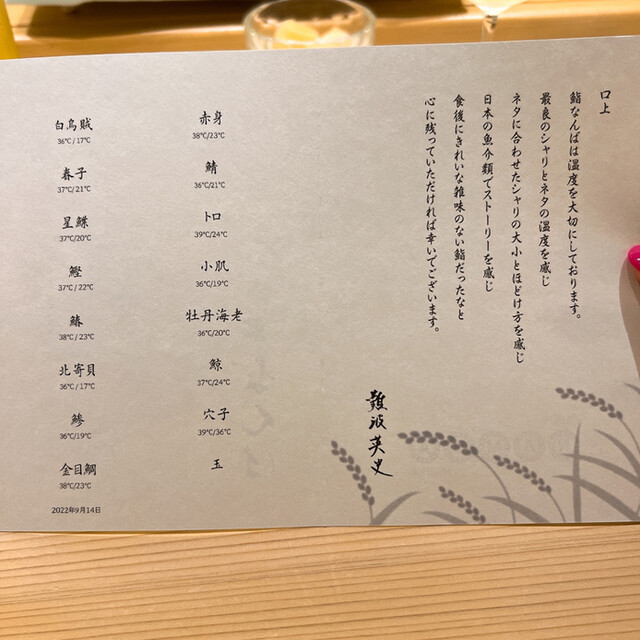 口上
鮨なんばは温度を大切にしております。
最良のシャリとネタの温度を感じ
ネタに合わせたシャリの大小とほどけ方を感じ
日本の魚介類でストーリーを感じ
食後にきれいな雑味のない鮨だったなと
心に残っていただければ幸いでございます。
難波英史
赤身
38℃/23℃
鯖
36℃/21℃
トロ
39℃/24℃
小肌
36℃/19℃
牡丹海老
36℃/20℃
鯨
37℃/24℃
穴子
39℃/36℃
玉
白烏賊
36℃/17℃
春子
37℃/21℃
星鰈
37℃/20℃
鰹
37℃/22℃
鰆
38℃/23℃
北寄貝
36℃/17℃
鯵
36℃/19℃
金目鯛
38℃/23℃
2022年9月14日